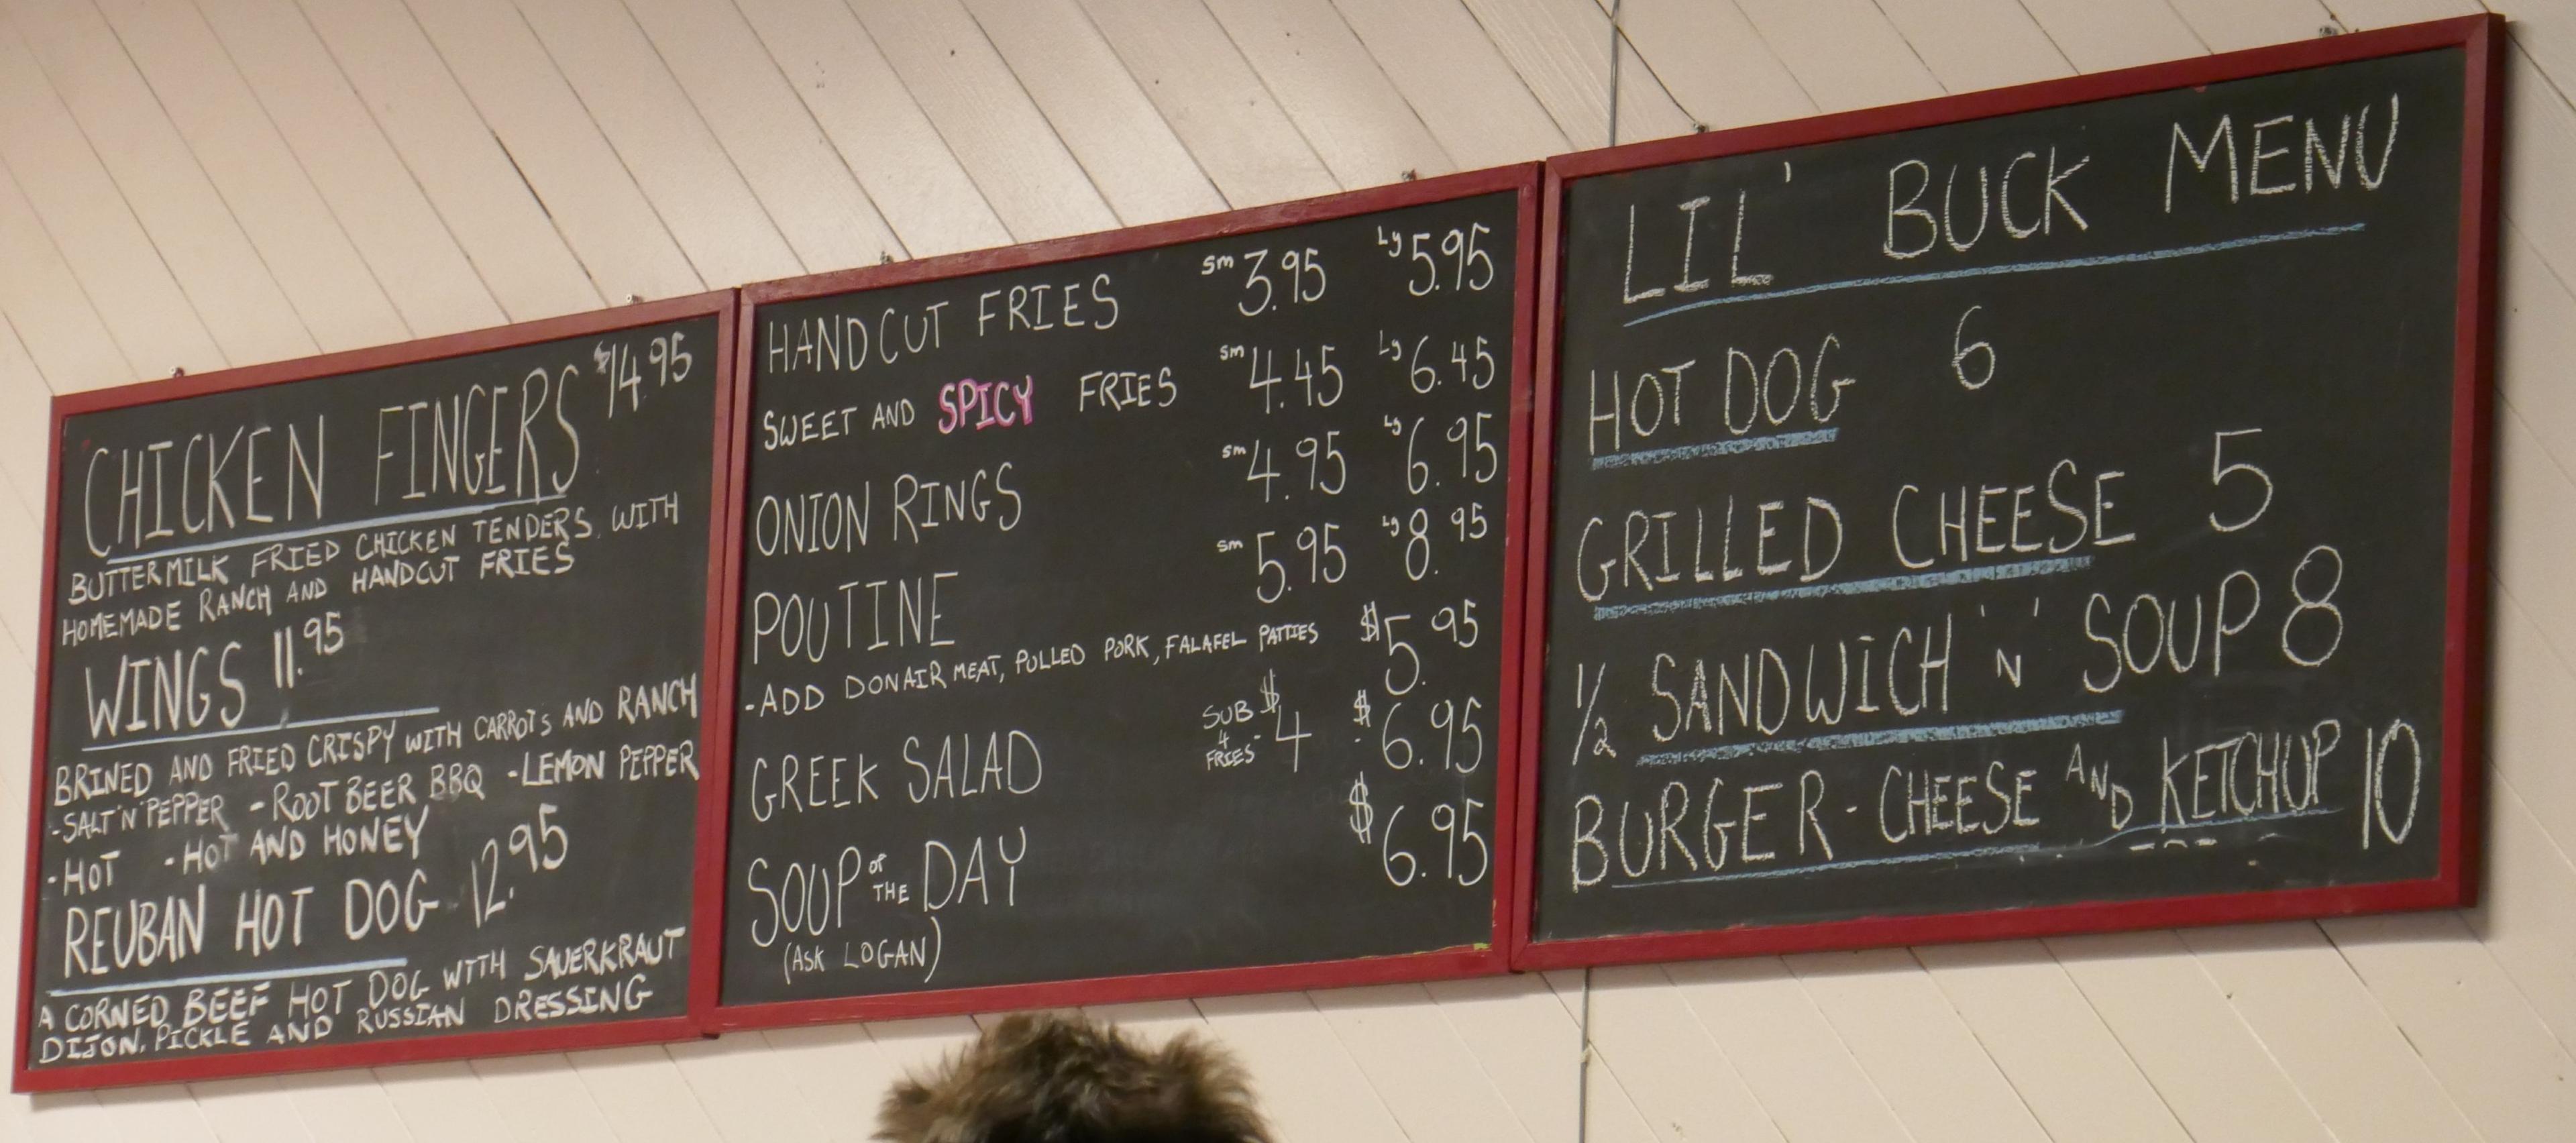 CHICKEN FINGERS $14.95
BUTTERMILK FRIED CHICKEN TENDERS, WITH
HOMEMADE RANCH AND HANDCUT FRIES
WINGS 11.95
BRINED AND FRIED CRISPY WITH CARROTS AND RANCH
-SALT'N'PEPPER -ROOT BEER BBQ -LEMON PEPPER
-HOT -HOT AND HONEY
REUBAN HOT DOG 12.95
A CORNED BEEF HOT DOG WITH SAUERKRAUT
DIJON, PICKLE AND RUSSIAN DRESSING
HANDCUT FRIES sm 3.95 Lg 5.95
SWEET AND SPICY FRIES sm 4.45 Lg 6.45
ONION RINGS sm 4.95 Lg 6.95
POUTINE sm 5.95 Lg 8.95
-ADD DONAIR MEAT, PULLED PORK, FALAFEL PATTIES $5.95
GREEK SALAD SUB 4 FRIES - $4 $6.95
SOUP of THE DAY $6.95
(ASK LOGAN)
LIL' BUCK MENU
HOT DOG 6
GRILLED CHEESE 5
1/2 SANDWICH 'N' SOUP 8
BURGER - CHEESE AND KETCHUP 10